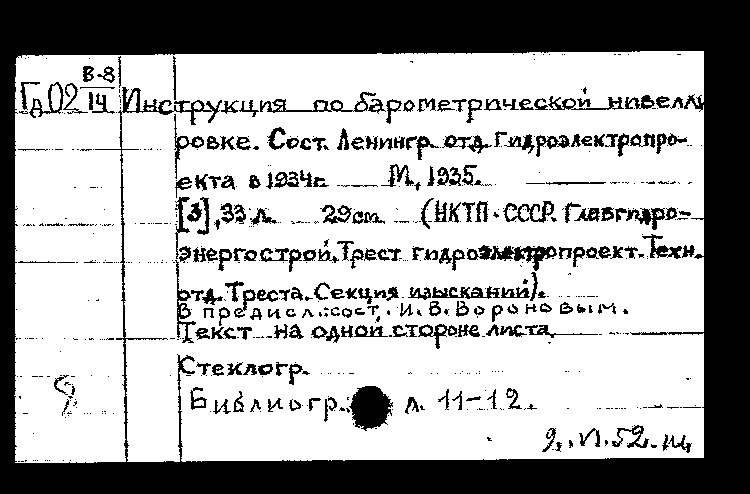 В-8
Гд02 14 Инструкция по барометрической нивелли
ровке. Сост. Ленингр. отд. Гидроэлектропро-
екта в 1934г. М., 1935.
[3], 33 л. 29см. (НКТП·СССР. Главгидро-
энергострой. Трест гидроэлектропроект. Техн.
отд. Треста. Секция изысканий).
В предисл.:сост. И. В. Вороновым.
Текст на одной стороне листа.
Стеклогр.
Библиогр.: л. 11-12.
9.VI.52.